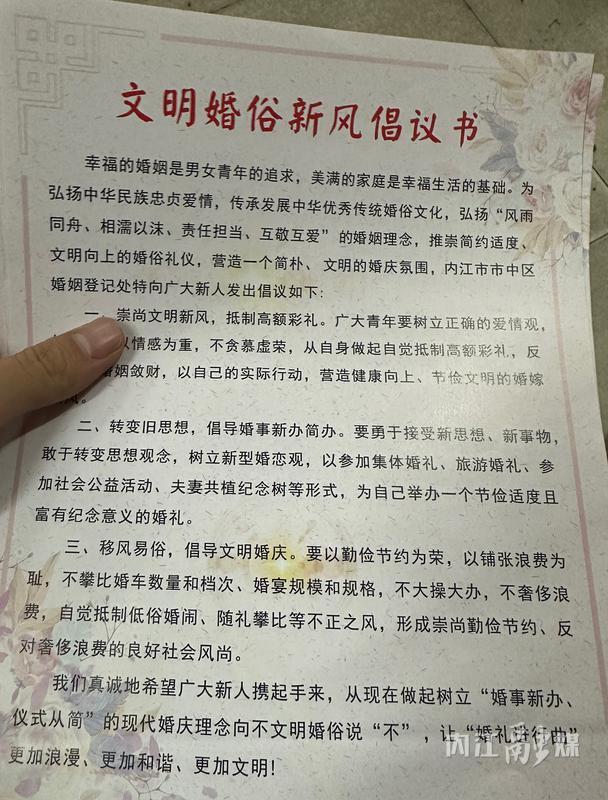 文明婚俗新风倡议书
幸福的婚姻是男女青年的追求，美满的家庭是幸福生活的基础。为
弘扬中华民族忠贞爱情，传承发展中华优秀传统婚俗文化，弘扬“风雨
同舟、相濡以沫、责任担当、互敬互爱”的婚姻理念，推崇简约适度、
文明向上的婚俗礼仪，营造一个简朴、文明的婚庆氛围，内江市市中区
婚姻登记处特向广大新人发出倡议如下：
一、崇尚文明新风，抵制高额彩礼。广大青年要树立正确的爱情观，
以情感为重，不贪慕虚荣，从自身做起自觉抵制高额彩礼，反
婚姻敛财，以自己的实际行动，营造健康向上、节俭文明的婚嫁
。
二、转变旧思想，倡导婚事新办简办。要勇于接受新思想、新事物，
敢于转变思想观念，树立新型婚恋观，以参加集体婚礼、旅游婚礼、参
加社会公益活动、夫妻共植纪念树等形式，为自己举办一个节俭适度且
富有纪念意义的婚礼。
三、移风易俗，倡导文明婚庆。要以勤俭节约为荣，以铺张浪费为
耻，不攀比婚车数量和档次、婚宴规模和规格，不大操大办，不奢侈浪
费，自觉抵制低俗婚闹、随礼攀比等不正之风，形成崇尚勤俭节约、反
对奢侈浪费的良好社会风尚。
我们真诚地希望广大新人携起手来，从现在做起树立“婚事新办、
仪式从简”的现代婚庆理念向不文明婚俗说“不”，让“婚礼进行曲”
更加浪漫、更加和谐、更加文明！
内江融媒